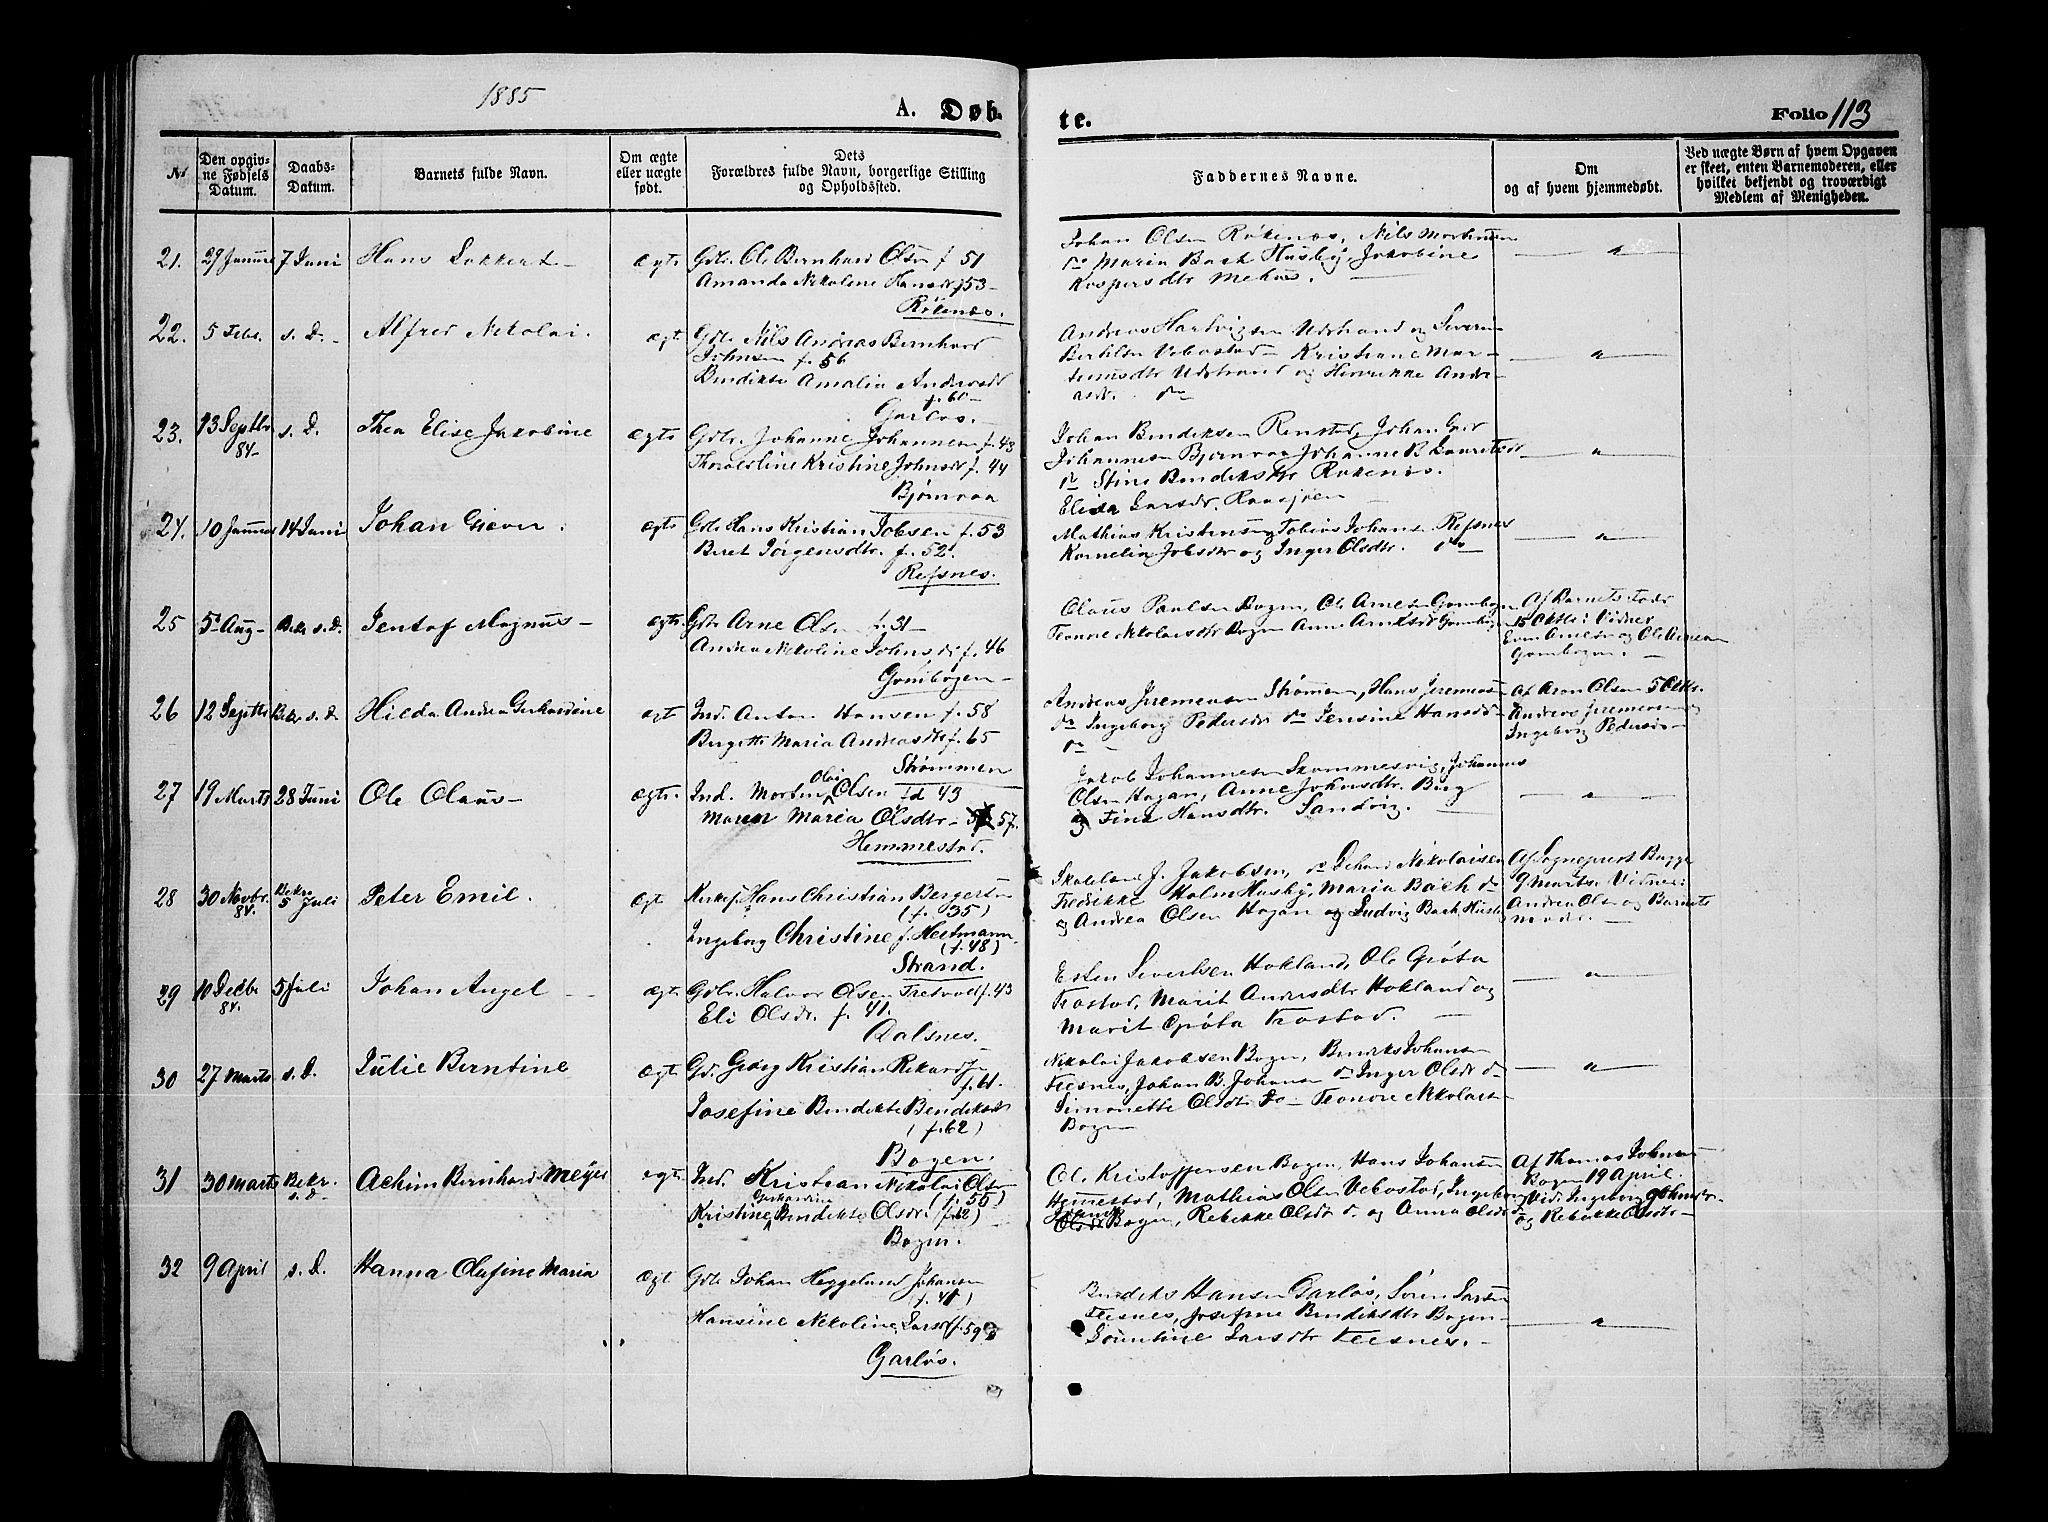 1885
A. Døb-
te.
Folio 113
No
Den opgiv-
ne Fødsels
Datum.
Daabs-
Datum.
Barnets fulde Navn.
Om ægte
eller uægte
født.
Dets
Forældres fulde Navn, borgerlige Stilling
og Opholdssted.
Faddernes Navne.
Om
og af hvem hjemmedøbt.
Ved uægte Børn af hvem Opgaven
er skeet, enten Barnemoderen, eller
hvilket bekjendt og troværdigt
Medlem af Menigheden.
21. 29 Januar 7 Juni Hans Lokkert ægte Gdbr. Ole Bernhard Olsen f 51
Amanda Nikoline Hansdr f 53
Røkenes.
Johan Olsen Røkenes, Nils Mortensen
do Maria Bach Husby, Jakobine
Kaspersdtr Mehus.
22. 5 Febr. s. D. Alfred Nikolai. ægt Gdb Nils Andreas Bernhard
Johnsen f. 56
Bendikte Amalia Andersdr
f. 60
Garløs.
Andreas Hartvigsen Udstrand og Severin
Berthsen Vebostad Kristiane Mar-
tinusdtr Udstrand og Henrikke Andre-
asdr. do
23. 13 Septbr 84 s. D. Thea Elise Jakobine ægte Gdbr. Johanne Johannesen f. 43
Thoraline Kristine Johnsdr f. 44
Bjørnraa
Johan Bendiksen Renstad, Johan
Johannesen Bjørnraa Johanne B
do Stine Bendiksdtr Røkenes.
Elisa Larsdr.
24. 10 Januar 14 Juni Johan Giæver. ægte Gdb Hans Kristian Jobsen f. 53
Beret Jørgensdtr. f. 52.
Refsnes.
Mathias Kristensen Tobias Johans. Refsnes
Kornelia Jobsdtr og Inger Olsdtr. do
25 5 Aug Bekr s. D. Jentof Magnus ægte Gdb Arne Olsen f. 31
Andrea Nikoline Johnsdr f. 46
Gombogen
Olaus Paulsen Bogen, Ole Arnesen Gombogen
Leonore Nikolaisdtr Bogen Anne Arnesdtr Gombogen
Af Barnets Fader
15 Oktbr: Vidner
Even Arnesen og Ole Arnesen
Gombogen.
26 12 Septbr Bekr s. D Hilda Andrea Gerhardine ægt Ind. Anton Hansen f. 58
Bergitte Maria Andreasdtr f. 65
Strømmen
Andreas Jeremiassen Strømmen, Hans Jeremiassen
do Ingeborg Pedersdr do Jensine Hansdr
do
Af Aron Olsen 5 Oktbr.
Andreas Jeremiassen og
Ingeborg Pedersdr
27 19 Marts 28 Juni Ole Olaus ægte. Ind. Morten Olai Olsen fd 43
Maren Maria Olsdtr 57.
Hemmestad.
Jakob Johannesen Skommesvig, Johannes
Olsen Hagan, Anne Johnsdtr. Berg
og Fina Hansdtr. Sandvig.
28 30 Novbr 84. Bekr 5 Juli Peter Emil. ægt Kirkes. Hans Christian Bergersen
(f. 35)
Ingeborg Christine f. Heitmann
(f. 48)
Strand.
Skolelærer J. Jakobsen, do Gehard Nikolaisen
Fredrikke Holm Husby, Maria Bach do
og Andrea Olsen Hagan og Ludvig Bach Husby
Af Sogneprest Bugge
9 Marts. Vidner:
Andrea Olsen og Barnets
moder.
29 10 Decbr 84. 5 Juli Johan Angel ægt. Gdbr. Halvor Olsen Tretvold f. 43
Eli Olsdr. f. 41.
Aalsnes.
Esten Sivertsen Hokland, Ole Grøta
Trastad, Marit Andersdtr Hokland og
Marit Grøta Trastad.
30 27 Marts s. D. Julie Berntine ægt. Gd. Georg Kristian Rekardsen
f. 61.
Josefine Bendikte Bendiksdr
(f. 62)
Bogen.
Nikolai Jakobsen Bogen, Bendiks Johansen
Flesnes, Johan B. Johansen do Inger Olsdr do
Simonette Olsdtr do Leonore Nikolais
Bogen
31 30 Marts Bekr. s. D Achim Bernhard Meyer egt Ind. Kristian Nikolai Olsen
(f. 55)
Kristine Gerhardine Bendikte Olsdr. (f. 62)
Bogen.
Ole Kristoffersen Bogen, Hans Johansen
Hemestad, Mathias Olsen Vebostad, Ingeborg
Olsdr Bogen, Rebekke Olsdr do og Anna Olsdr do
Af Thomas Johnsen
Bogen 19 April.
Vid: Ingeborg Johnsdr
og Rebekke Olsdtr
32 9 April s. D. Hanna Olufine Maria Ægt Gdb Johan Heggelund Johansen
(f. 41)
Hansine Nikoline Larsdr (f. 59)
Garløs.
Bendiks Hansen Garløs, Søren Larsen
Flesnes, Josefine Bendiksdtr Bogen
Lorentine Larsdtr Flesnes.